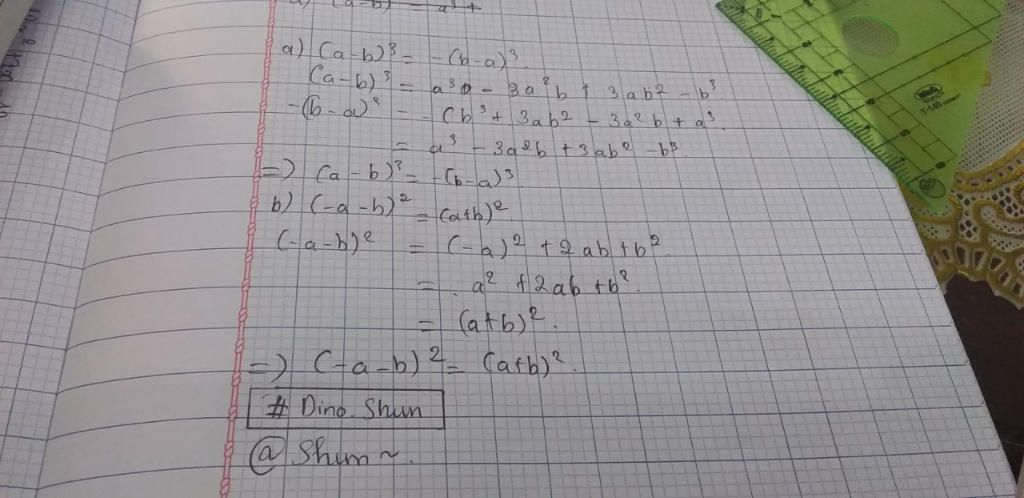 a) (a-b)³ = -(b-a)³.
(a-b)³ = a³ - 3a²b + 3ab² - b³
-(b-a)³ = -(b³ + 3ab² - 3a²b + a³
= a³ - 3a²b + 3ab² - b³.
=> (a-b)³ = -(b-a)³
b) (-a-b)² = (a+b)²
(-a-b)² = (-a)² + 2ab + b²
= a² + 2ab + b².
= (a+b)².
=> (-a-b)² = (a+b)².
# Dino. Shun
@ Shun ~.